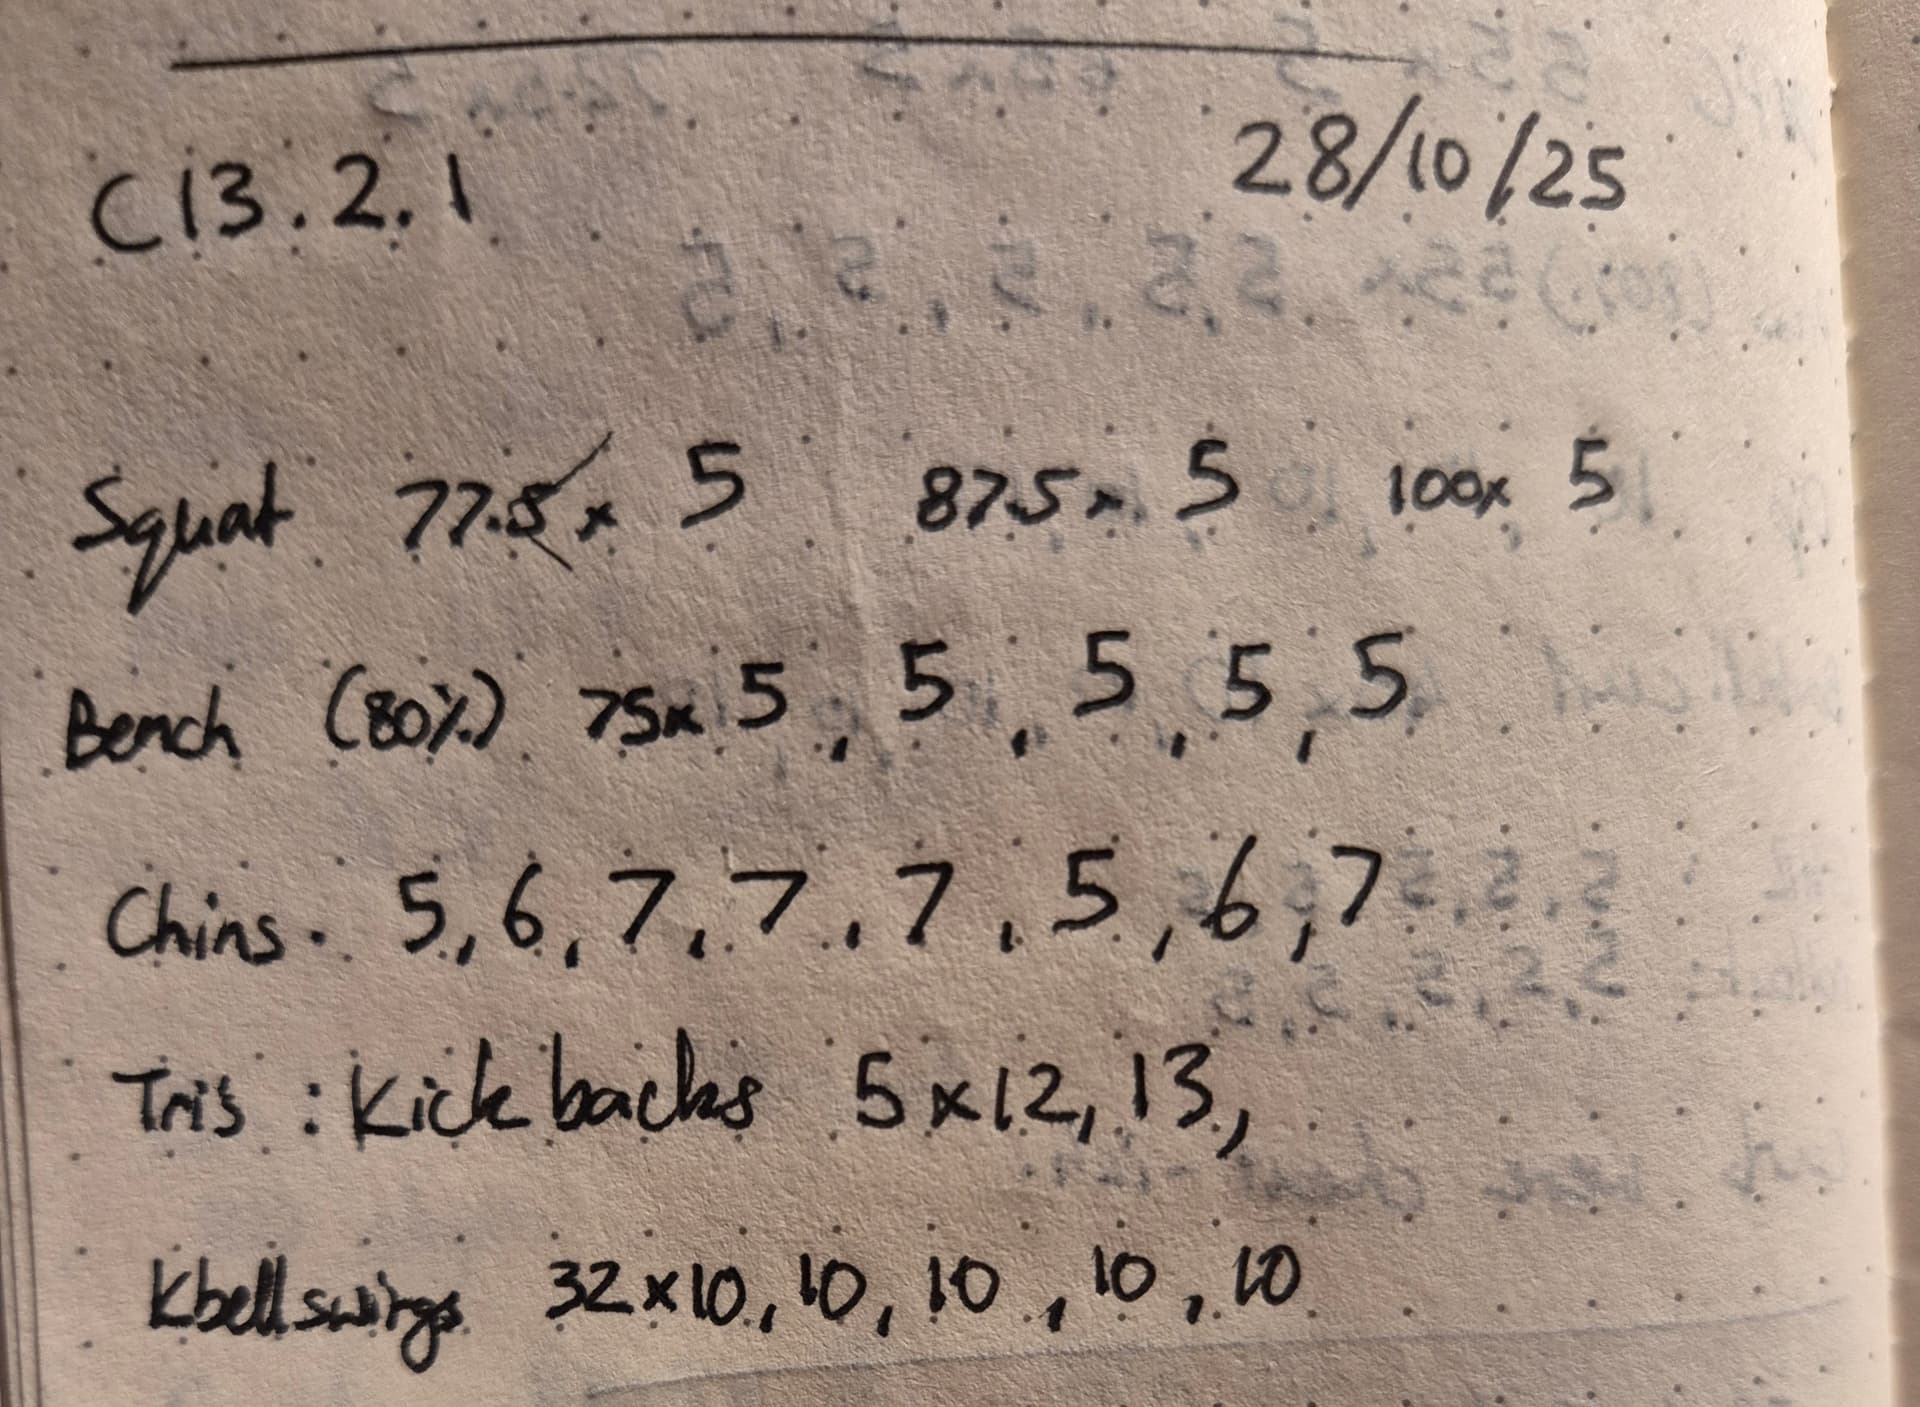 C13.2.1 28/10/25
Squat 77.5x 5 87.5x 5 100x 5
Bench (80%) 75x 5, 5, 5, 5, 5
Chins. 5, 6, 7, 7, 7, 5, 6, 7
Tris : Kickbacks 5x12, 13,
Kbell swings 32x10, 10, 10, 10, 10